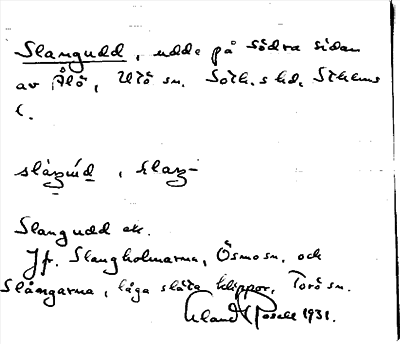 Slangudd, udde på södra sidan
av Ålö, Utö sn. Soth. s hd. Sthlms
l.
slåŋúd, slaŋ-
Slangudd ek.
Jfr. Slangholmarna, Ösmo sn. och
Slångarna, låga släta klippor, Torö sn.
Erland Rosell 1931.